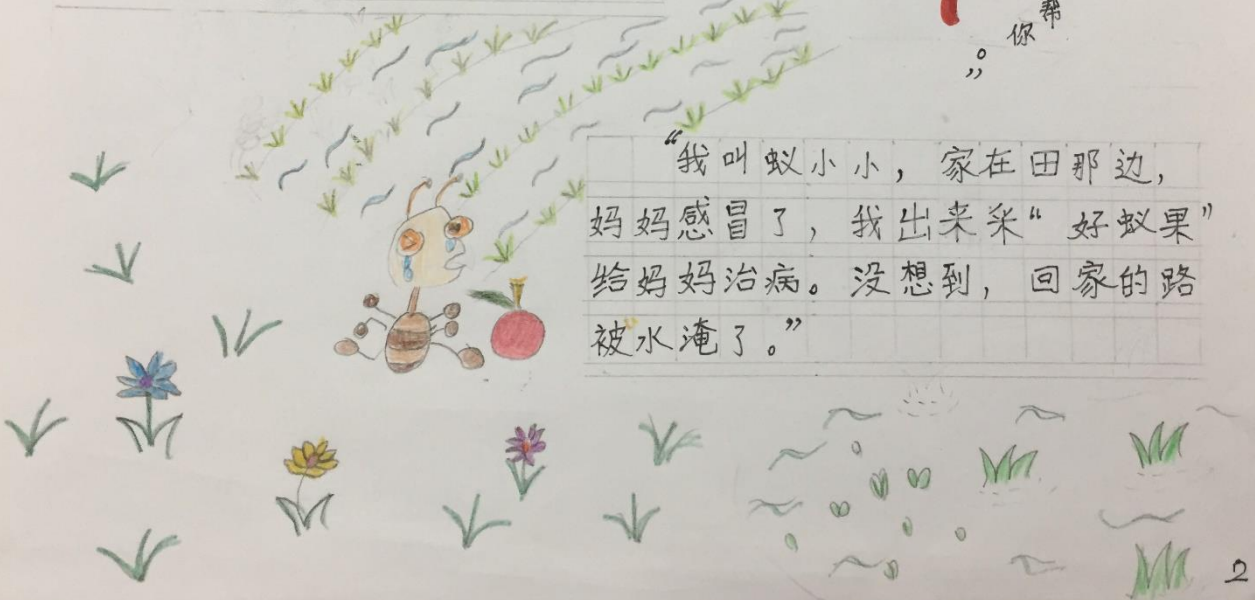 帮
你
。”
“我叫蚁小小，家在田那边，
妈妈感冒了，我出来采“好蚁果”
给妈妈治病。没想到，回家的路
被水淹了。”
2